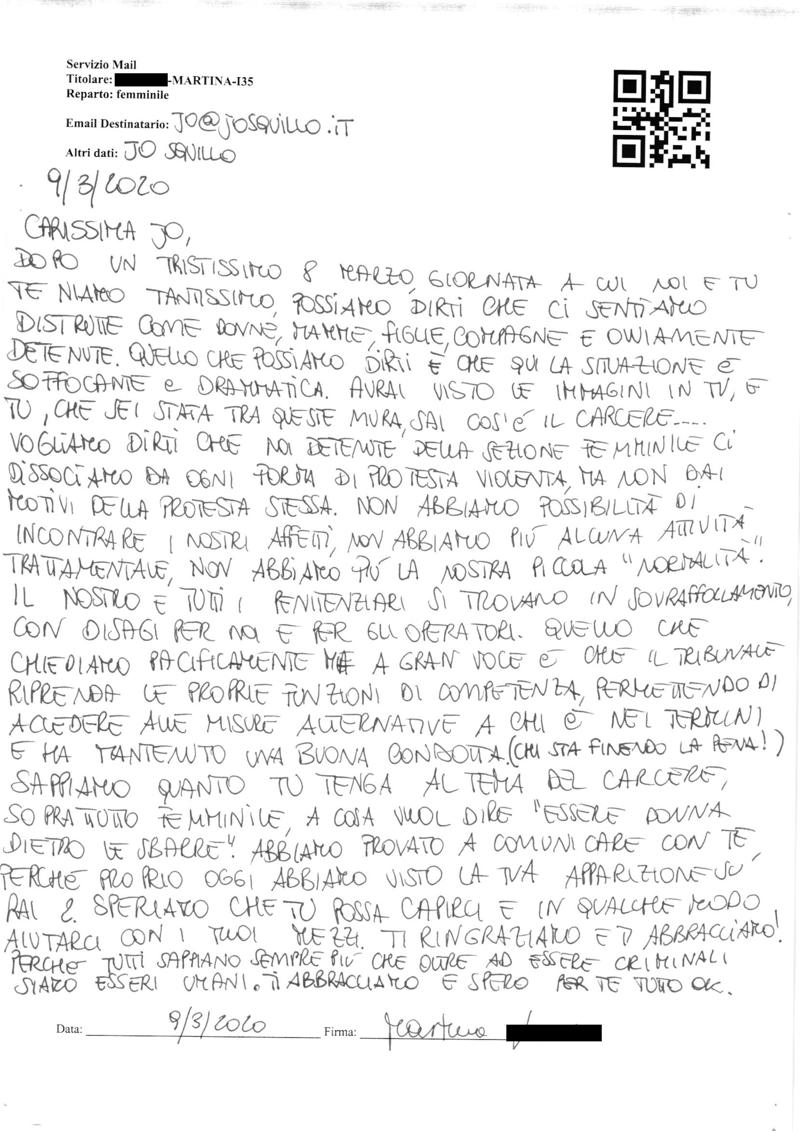 Servizio Mail
Titolare: -MARTINA-I35
Reparto: femminile
Email Destinatario: JO@JOSQUILLO.IT
Altri dati: JO SQUILLO
9/3/2020
CARISSIMA JO,
DOPO UN TRISTISSIMO 8 MARZO, GIORNATA A CUI NOI E TU
TENIAMO TANTISSIMO, POSSIAMO DIRTI CHE CI SENTIAMO
DISTRUTTE COME DONNE, MAMME, FIGLIE, COMPAGNE E OVVIAMENTE
DETENUTE. QUELLO CHE POSSIAMO DIRTI È CHE QUI LA SITUAZIONE È
SOFFOCANTE E DRAMMATICA. AVRAI VISTO LE IMMAGINI IN TV, E
TU, CHE SEI STATA TRA QUESTE MURA, SAI COS'É IL CARCERE.....
VOGLIAMO DIRTI CHE NOI DETENUTE DELLA SEZIONE FEMMINILE CI
DISSOCIAMO DA OGNI FORMA DI PROTESTA VIOLENTA, MA NON DAI
MOTIVI DELLA PROTESTA STESSA. NON ABBIAMO POSSIBILITÀ DI
INCONTRARE I NOSTRI AFFETTI, NON ABBIAMO PIÙ ALCUNA ATTIVITÀ
TRATTAMENTALE, NON ABBIAMO PIÙ LA NOSTRA PICCOLA "NORMALITÀ".
IL NOSTRO E TUTTI I PENITENZIARI SI TROVANO IN SOVRAFFOLLAMENTO,
CON DISAGI PER NOI E PER GLI OPERATORI. QUELLO CHE
CHIEDIAMO PACIFICAMENTE MA A GRAN VOCE È CHE IL TRIBUNALE
RIPRENDA LE PROPRIE FUNZIONI DI COMPETENZA, PERMETTENDO DI
ACCEDERE ALLE MISURE ALTERNATIVE A CHI È NEI TERMINI
E HA MANTENUTO UNA BUONA CONDOTTA. (CHI STA FINENDO LA PENA!)
SAPPIAMO QUANTO TU TENGA AL TEMA DEL CARCERE,
SOPRATTUTTO FEMMINILE, A COSA VUOL DIRE "ESSERE DONNA
DIETRO LE SBARRE". ABBIAMO PROVATO A COMUNICARE CON TE,
PERCHÈ PROPRIO OGGI ABBIAMO VISTO LA TUA APPARIZIONE SU
RAI 2. SPERIAMO CHE TU POSSA CAPIRCI E IN QUALCHE MODO
AIUTARCI CON I TUOI MEZZI. TI RINGRAZIAMO E TI ABBRACCIAMO!
PERCHÈ TUTTI SAPPIANO SEMPRE PIÙ CHE OLTRE AD ESSERE CRIMINALI
SIAMO ESSERI UMANI. TI ABBRACCIAMO E SPERO PER TE TUTTO OK.
Data: 9/3/2020 Firma: Martina